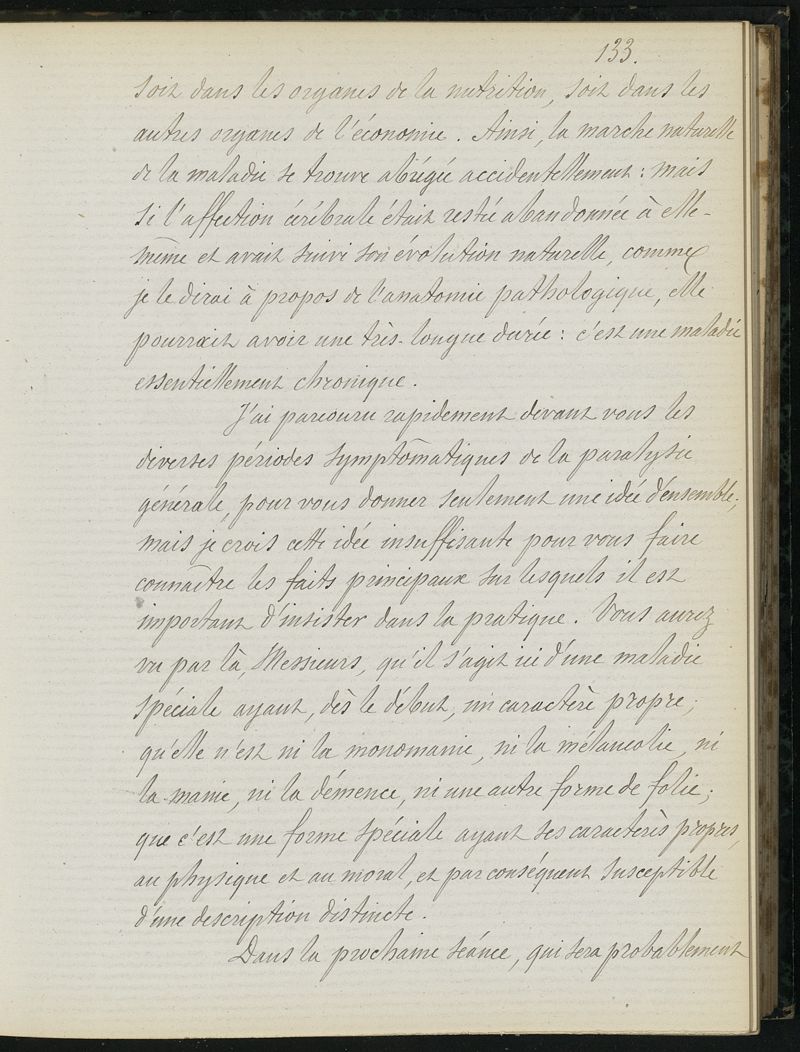 133.
soit dans les organes de la nutrition, soit dans les
autres organes de l'économie. Ainsi, la marche naturelle
de la maladie se trouve abrégée accidentellement : mais
si l'affection cérébrale était restée abandonnée à elle-
même et avait suivi son évolution naturelle, comme
je le dirai à propos de l'anatomie pathologique, elle
pourrait avoir une très-longue durée : c'est une maladie
essentiellement chronique.
J'ai parcouru rapidement devant vous les
diverses périodes symptômatiques de la paralysie
générale, pour vous donner seulement une idée d'ensemble;
mais je crois cette idée insuffisante pour vous faire
connaître les faits principaux sur lesquels il est
important d'insister dans la pratique. Vous aurez
vu par là, Messieurs, qu'il s'agit ici d'une maladie
spéciale ayant, dès le début, un caractère propre;
qu'elle n'est ni la monomanie, ni la mélancolie, ni
la manie, ni la démence, ni une autre forme de folie;
que c'est une forme spéciale ayant ses caractères propres,
au physique et au moral, et par conséquent susceptible
d'une description distincte.
Dans la prochaine séance, qui sera probablement